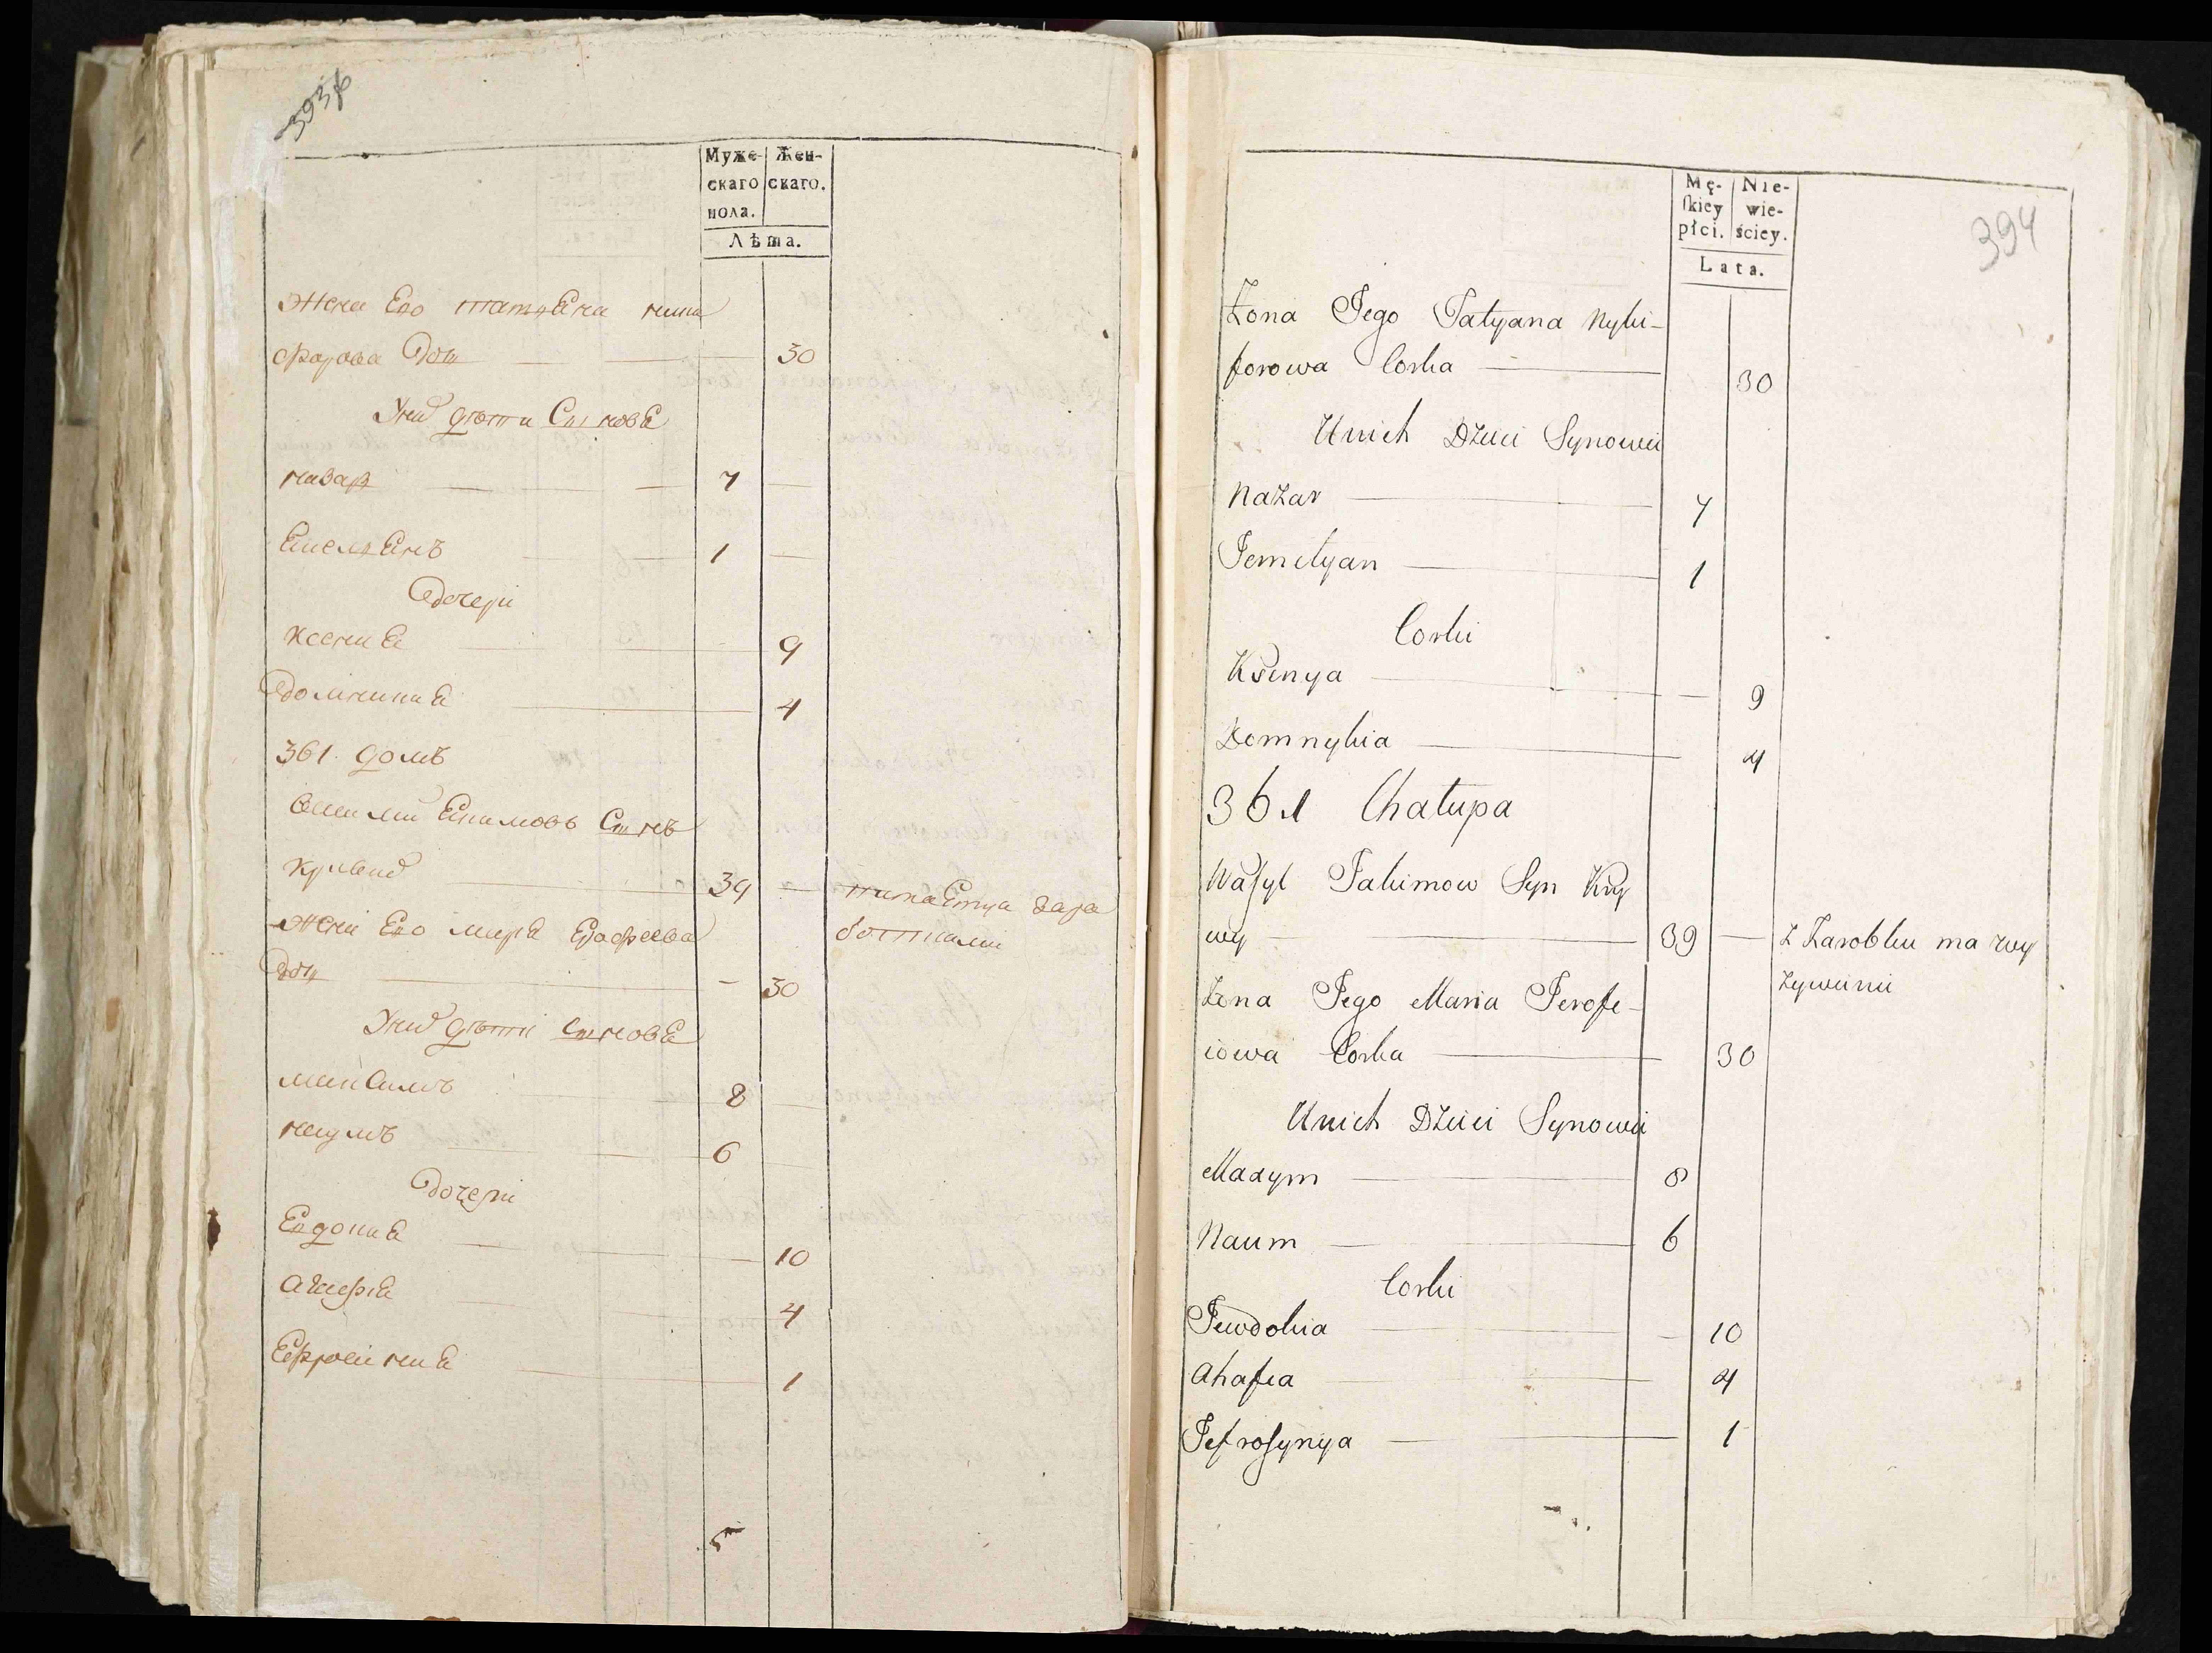 393
Муже- Жен-
скаго скаго.
пола.
Лѣта.
Жена Его татіяна ники
форова Доч 30
У них дѣти Сыновя
назар 7
Емелянъ 1
Дочери
ксения 9
Домникия 4
361 домъ
василий Екимовъ Сынъ
кривий 39 питается зара
Жена Его мария Ерофеева ботками
Доч 30
У них дѣти Сыновя
максимъ 8
наумъ 6
Дочери
Евдокия 10
агафия 4
Ефросиния 1
394
Mę- Nie-
ſkiey wie-
płci. ściey.
Lata.
Żona Jego Tatyana Nyki-
forowa Corka 30
U nich Dzieci Synowie
Nazar 7
Jemelyan 1
Corki
Ksenya 9
Domnykia 4
361 Chałupa
Waſyl Jakimow Syn Kry
wy 39 z Zarobku ma wy
Żona Jego Maria Jerofe- żywienie
iowa Corka 30
U nich Dzieci Synowie
Maxym 8
Naum 6
Corki
Jewdokia 10
Ahafia 4
Jefroſynya 1